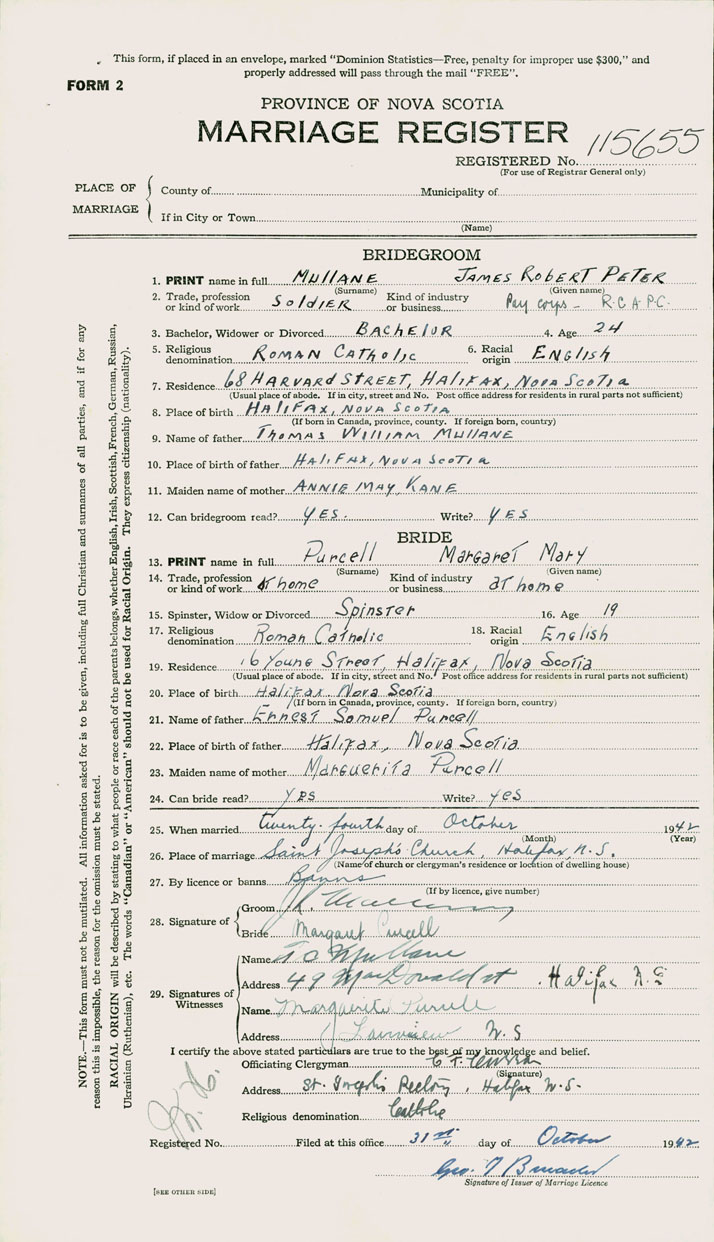 This form, if placed in an envelope, marked "Dominion Statistics—Free, penalty for improper use $300," and
properly addressed will pass through the mail "FREE".
FORM 2
PROVINCE OF NOVA SCOTIA
MARRIAGE REGISTER
115655
REGISTERED No.
(For use of Registrar General only)
PLACE OF MARRIAGE
County of Municipality of
If in City or Town
(Name)
BRIDEGROOM
1. PRINT name in full MULLANE JAMES ROBERT PETER
(Surname) (Given name)
2. Trade, profession or kind of work SOLDIER Kind of industry or business Pay corps - R.C.A.P.C.
3. Bachelor, Widower or Divorced BACHELOR 4. Age 24
5. Religious denomination ROMAN CATHOLIC 6. Racial origin ENGLISH
7. Residence 68 HARVARD STREET, HALIFAX, NOVA SCOTIA
(Usual place of abode. If in city, street and No. Post office address for residents in rural parts not sufficient)
8. Place of birth HALIFAX, NOVA SCOTIA
(If born in Canada, province, county. If foreign born, country)
9. Name of father THOMAS WILLIAM MULLANE
10. Place of birth of father HALIFAX, NOVA SCOTIA
11. Maiden name of mother ANNIE MAY KANE
12. Can bridegroom read? YES. Write? YES
BRIDE
13. PRINT name in full Purcell Margaret Mary
(Surname) (Given name)
14. Trade, profession or kind of work At home Kind of industry or business at home
15. Spinster, Widow or Divorced Spinster 16. Age 19
17. Religious denomination Roman Catholic 18. Racial origin English
19. Residence 16 Young Street, Halifax, Nova Scotia
(Usual place of abode. If in city, street and No. Post office address for residents in rural parts not sufficient)
20. Place of birth Halifax Nova Scotia
(If born in Canada, province, county. If foreign born, country)
21. Name of father Ernest Samuel Purcell
22. Place of birth of father Halifax, Nova Scotia
23. Maiden name of mother Marguerita Purcell
24. Can bride read? yes Write? yes
25. When married twenty-fourth day of October 1942
(Month) (Year)
26. Place of marriage Saint Joseph's Church, Halifax, N.S.
(Name of church or clergyman's residence or location of dwelling house)
27. By licence or banns Banns
(If by licence, give number)
28. Signature of
Groom
Bride Margaret Purcell
29. Signatures of Witnesses
Name Mullane
Address 49 MacDonald st. Halifax N.S
Name Purcell
Address Fairview N.S
I certify the above stated particulars are true to the best of my knowledge and belief.
Officiating Clergyman
(Signature)
Address St. Joseph's Rectory, Halifax N.S.
Religious denomination Catholic
Registered No. Filed at this office 31st day of October 1942
Geo.
Signature of Issuer of Marriage Licence
[SEE OTHER SIDE]
NOTE.—This form must not be mutilated. All information asked for is to be given, including full Christian and surnames of all parties, and if for any
reason this is impossible, the reason for the omission must be stated.
RACIAL ORIGIN will be described by stating to what people or race each of the parents belongs, whether English, Irish, Scottish, French, German, Russian,
Ukrainian (Ruthenian), etc. The words "Canadian" or "American" should not be used for Racial Origin. They express citizenship (nationality).